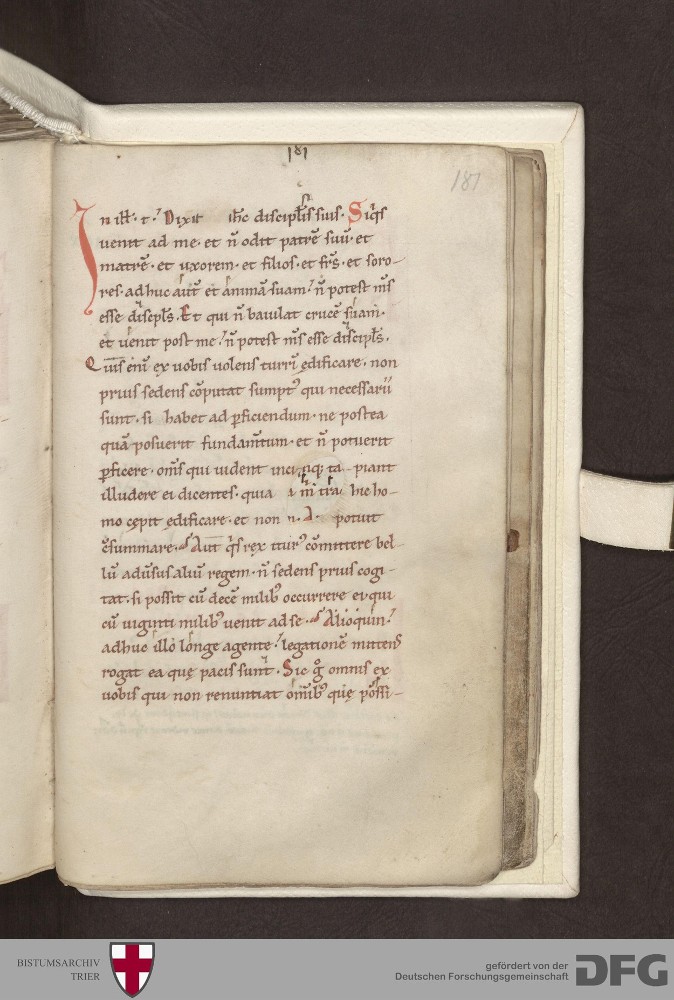 181
181
In ill̅. t̅. Dixit ih̅c discipl̅is suis. Siq͛s
uenit ad me. et n̅ odit patre̅ suu̅. et
matre̅. et uxorem. et filios. et fr̅s. et soro-
res. adhuc aut̅ et anima̅ suam. n̅ potest m̅s
esse discipl̅s. Et qui n̅ baiulat cruce̅ suam.
et uenit post me. n̅ potest m̅s esse discipl̅s.
Quis eni̅ ex uobis uolens turri̅ ędificare. non
prius sedens co̅putat sumpt᷒ qui necessarii
sunt. si habet ad ꝑficiendum. ne postea
qua̅ posuerit fundam̅tum. et n̅ potuerit
ꝑficere. om̅s qui uident inci piant
illudere ei dicentes. quia hic ho-
mo cępit ędificare. et non potuit
c̅summare. Aut q͛s rex itur᷒ co̅mittere bel-
lu̅ adu̅sus aliu̅ regem. n̅ sedens prius cogi-
tat. si possit cu̅ dece̅ milib᷒ occurrere ei qui
cu̅ uiginti milib᷒ uenit ad se. Alioquin.
adhuc illo longe agente. legatione̅ mittens
rogat ea quę pacis sunt. Sic g̊ omnis ex
uobis qui non renuntiat om̅ib᷒ quę possi-
BISTUMSARCHIV
TRIER
gefördert von der
Deutschen Forschungsgemeinschaft
DFG